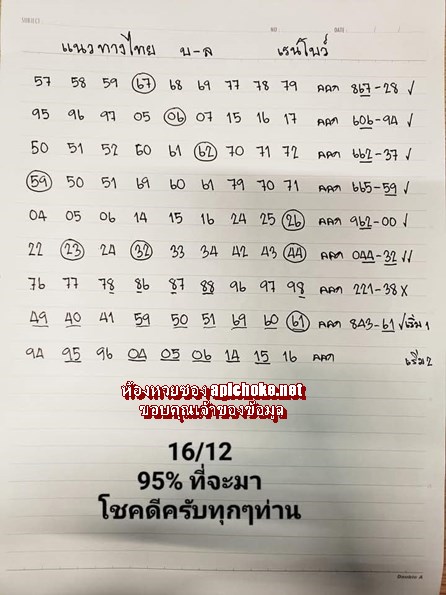 SUBJECT
NO DATE / /
แนวทางไทย บ-ล เรนโบว์
57 58 59 67 68 69 77 78 79 ออก 867-28 ✓
95 96 97 05 06 07 15 16 17 ออก 606-94 ✓
50 51 52 60 61 62 70 71 72 ออก 662-37 ✓
59 50 51 69 60 61 79 70 71 ออก 665-59 ✓
04 05 06 14 15 16 24 25 26 ออก 962-00 ✓
22 23 24 32 33 34 42 43 44 ออก 044-32 ✓✓
76 77 78 86 87 88 96 97 98 ออก 221-38 X
49 40 41 59 50 51 69 60 61 ออก 843-61 ✓เริ่ม 1
94 95 96 04 05 06 14 15 16 ออก เริ่ม 2
ห้องหวยซอง apichoke.net
ขอบคุณเจ้าของข้อมูล
16/12
95% ที่จะมา
โชคดีครับทุกๆท่าน